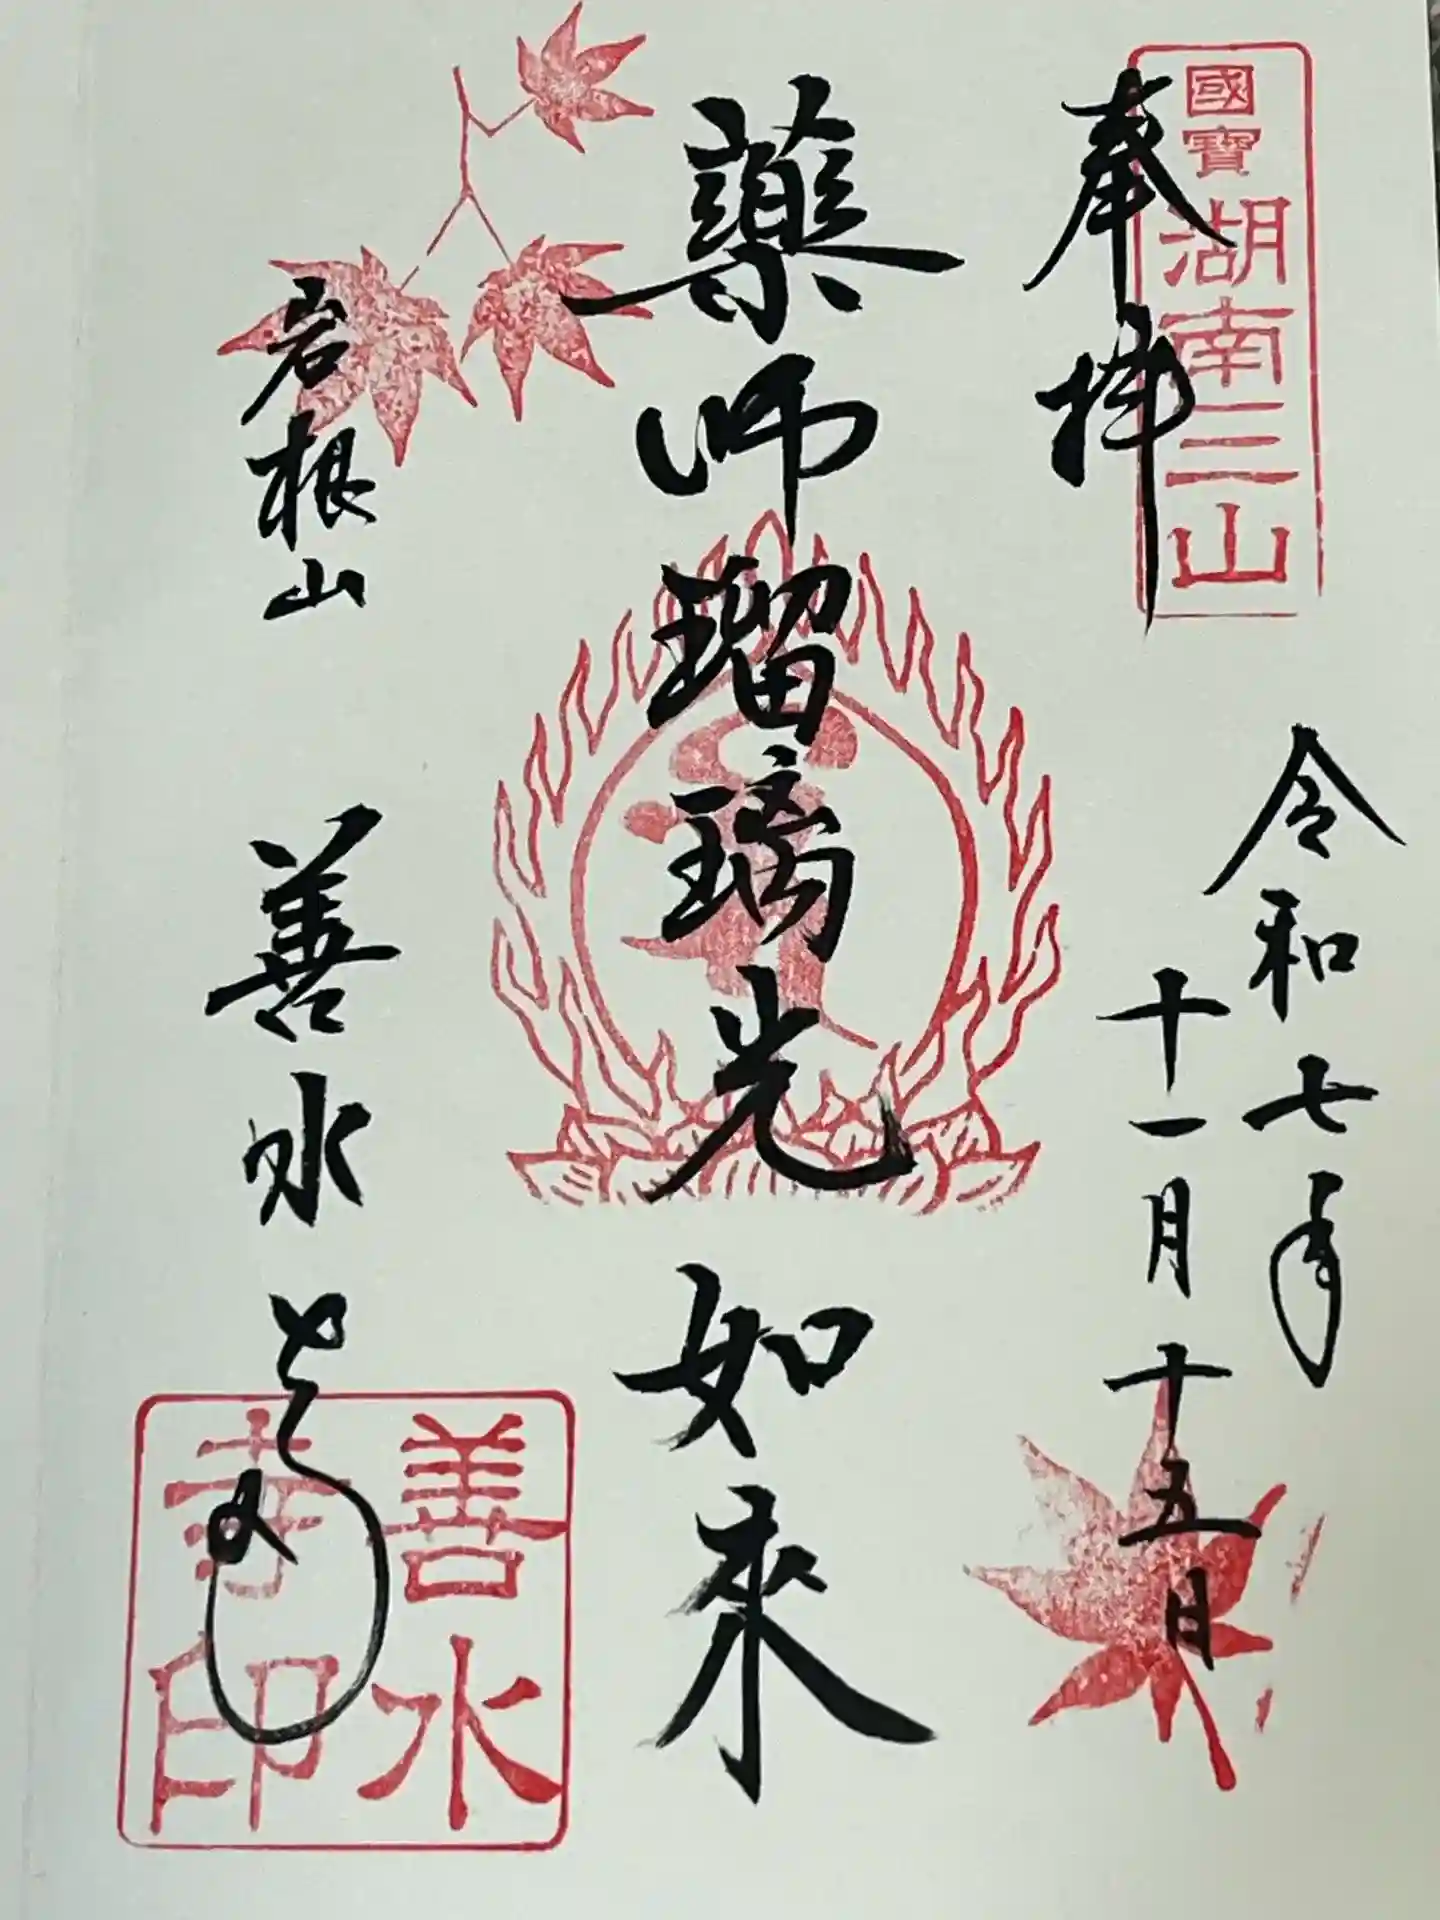 國寶
湖南三山
奉拝
令和七年
十一月十五日
薬師瑠璃光如來
岩根山
善水寺
善水
寺印